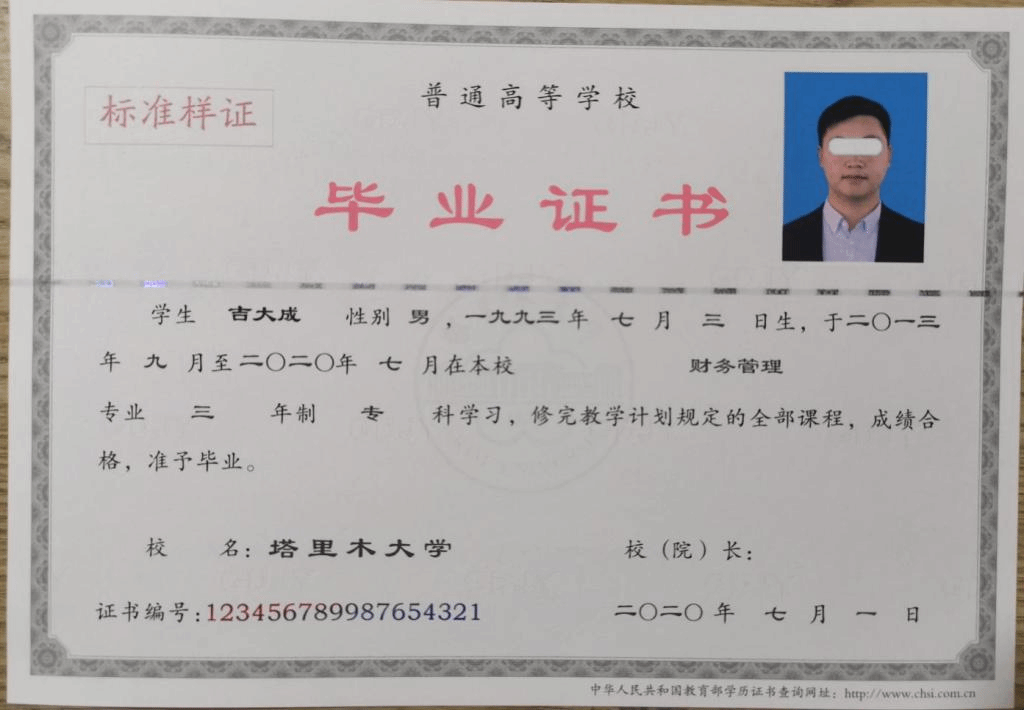 标准样证
普通高等学校
毕业证书
学生 吉大成 性别 男 ，一九九三年 七 月 三 日生，于二〇一三
年 九 月至二〇二〇年 七 月在本校 财务管理
专业 三 年制 专 科学习，修完教学计划规定的全部课程，成绩合
格，准予毕业。
校 名：塔里木大学 校（院）长：
证书编号：123456789987654321 二〇二〇年 七 月 一 日
中华人民共和国教育部学历证书查询网址：http://www.chsi.com.cn